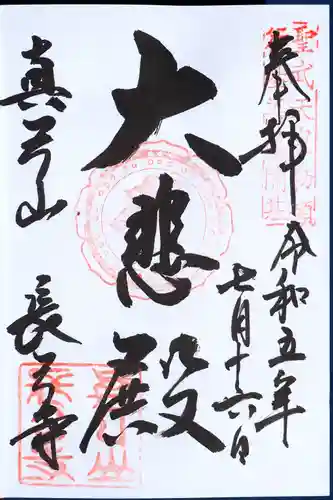 奉拝
令和五年
七月十六日
大悲殿
真弓山
長弓寺